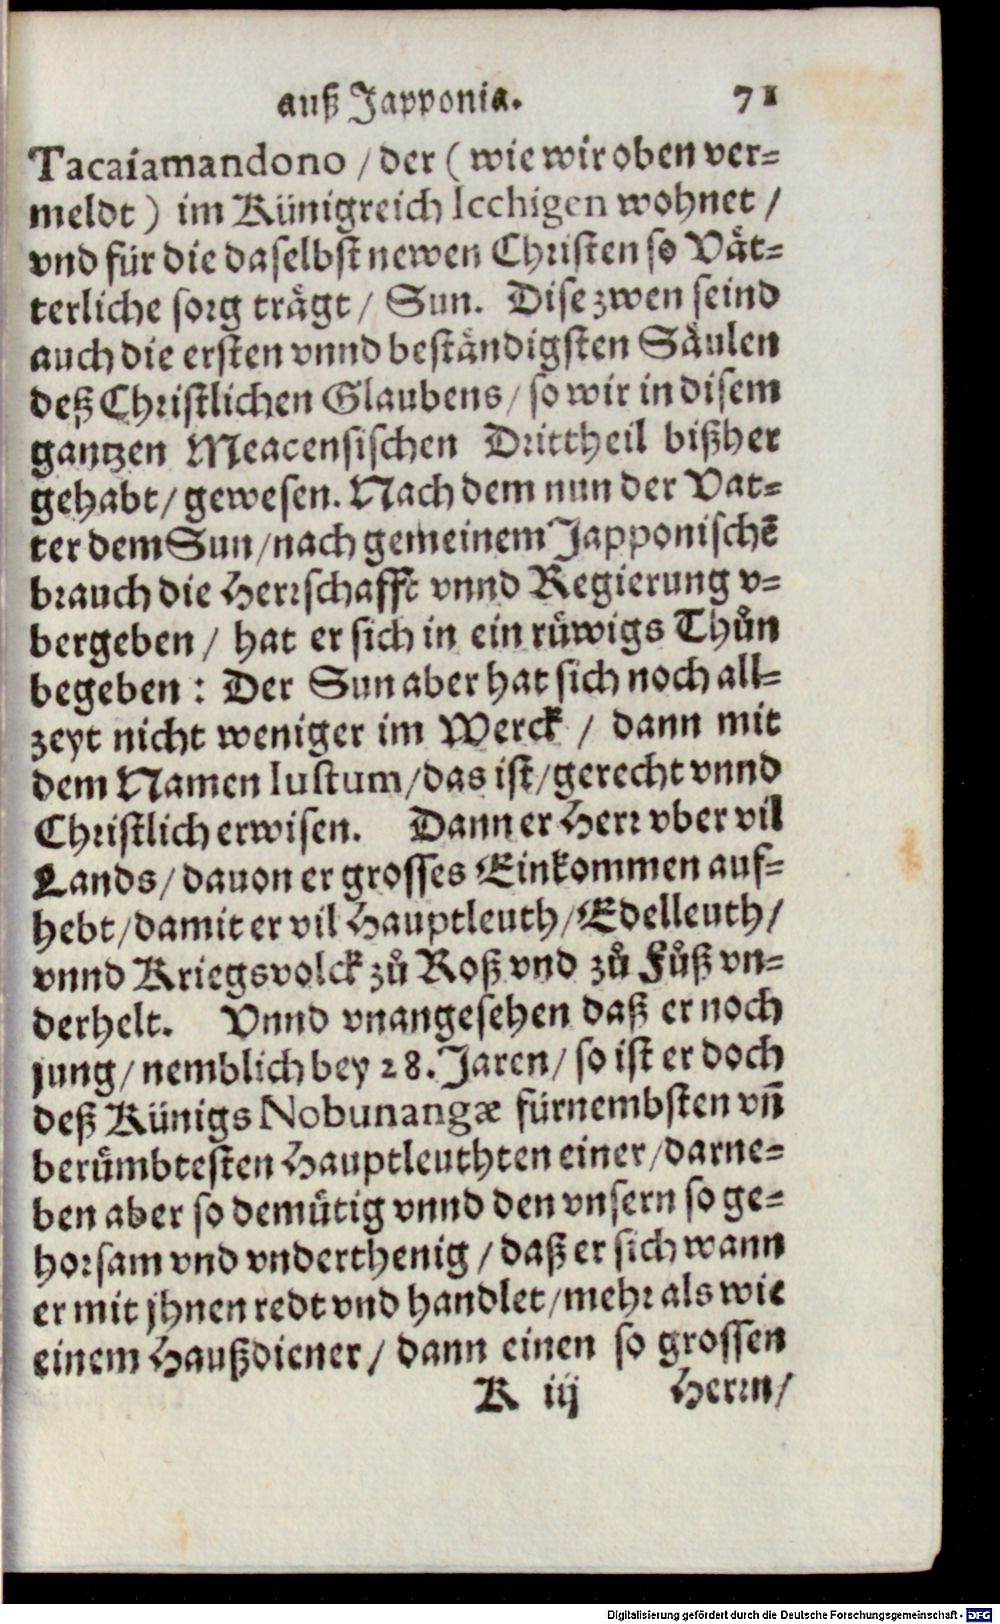 auß Japponia. 71
Tacaíamandono / der ( wie wir oben ver=
meldt ) im Künigreich Icchigen wohnet /
vnd für die daselbst newen Christen so Våt=
terliche sorg trågt / Sun. Dise zwen seind
auch die ersten vnnd beståndigsten Såulen
deß Christlichen Glaubens / so wir in disem
gantzen Meacensischen Drittheil bißher
gehabt / gewesen. Nach dem nun der Vat=
ter dem Sun / nach gemeinem Japponischē
brauch die Herrschafft vnnd Regierung v=
bergeben / hat er sich in ein rüwigs Thůn
begeben : Der Sun aber hat sich noch all=
zeyt nicht weniger im Werck / dann mit
dem Namen Iustum / das ist / gerecht vnnd
Christlich erwisen. Dann er Herr vber vil
Lands / dauon er grosses Einkommen auf=
hebt / damit er vil Hauptleuth / Edelleuth /
vnnd Kriegsvolck zů Roß vnd zů Fůß vn=
derhelt. Vnnd vnangesehen daß er noch
jung / nemblich bey 28. Jaren / so ist er doch
deß Künigs Nobunangæ fürnembsten vñ
berümbtesten Hauptleuthten einer / darne=
ben aber so demütig vnnd den vnsern so ge=
horsam vnd vnderthenig / daß er sich wann
er mit jhnen redt vnd handlet / mehr als wie
einem Haußdiener / dann einen so grossen
K iij Herrn /
Digitalisierung gefördert durch die Deutsche Forschungsgemeinschaft - DFG